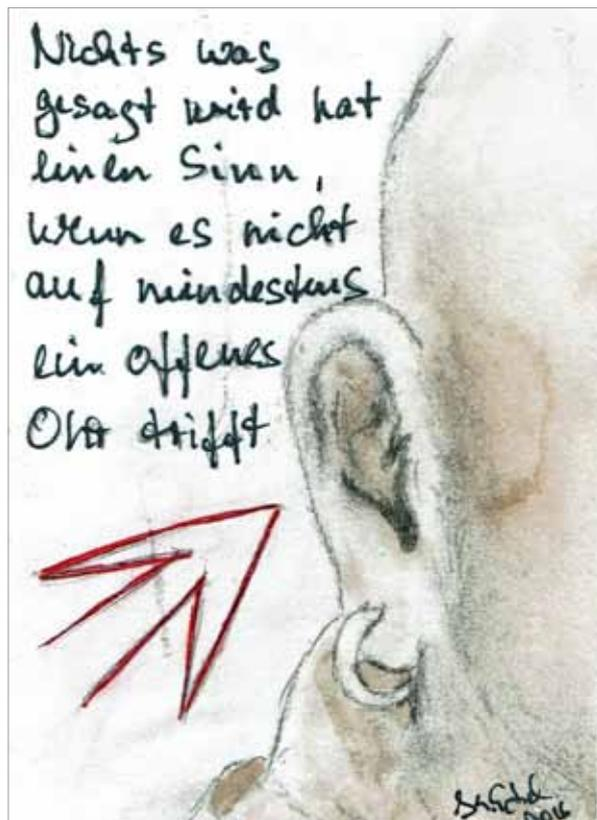 Nichts was
gesagt wird hat
einen Sinn,
wenn es nicht
auf mindestens
ein offenes
Ohr trifft